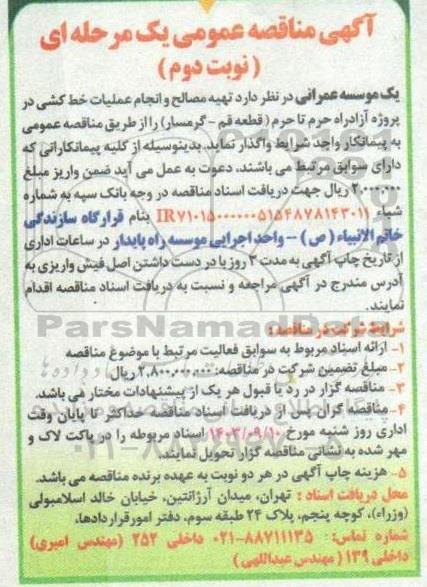 آگهی مناقصه عمومی یک مرحله ای
( نوبت دوم )
یک موسسه عمرانی در نظر دارد تهیه مصالح و انجام عملیات خط کشی در
پروژه آزادراه حرم تا حرم ( قطعه قم - گرمسار) را از طریق مناقصه عمومی
به پیمانکار واجد شرایط واگذار نماید. بدینوسیله از کلیه پیمانکارانی که
دارای سوابق مرتبط می باشند، دعوت به عمل می آید ضمن واریز مبلغ
۲.۰۰۰.۰۰۰ ریال جهت دریافت اسناد مناقصه در وجه بانک سپه به شماره
شباء (IR۷۱۰۱۵۰۰۰۰۰۰۵۱۵۴۸۷۸۱۴۳۰۱ بنام قرارگاه سازندگی
خاتم الانبیاء ( ص ) - واحد اجرایی موسسه راه پایدار در ساعات اداری
از تاریخ چاپ آگهی به مدت ۳ روز با در دست داشتن اصل فیش واریزی به
آدرس مندرج در آگهی مراجعه و نسبت به دریافت اسناد مناقصه اقدام
نمایند.
شرایط شرکت در مناقصه:
۱- ارائه اسناد مربوط به سوابق فعالیت مرتبط با موضوع مناقصه
۲- مبلغ تضمین شرکت در مناقصه: ۲.۸۰۰.۰۰۰.۰۰۰ ریال
۳- مناقصه گزار در رد یا قبول هر یک از پیشنهادات مختار می باشد.
۴- مناقصه گران پس از دریافت اسناد مناقصه حداکثر تا پایان وقت
اداری روز شنبه مورخ ۱۴۰۳/۰۹/۱۰ اسناد مربوطه را در پاکت لاک و
مهر شده به نشانی مناقصه گزار تحویل نمایند.
۵- هزینه چاپ آگهی در هر دو نوبت به عهده برنده مناقصه می باشد.
محل دریافت اسناد : تهران، میدان آرژانتین، خیابان خالد اسلامبولی
(وزراء)، کوچه پنجم، پلاک ۲۴ طبقه سوم، دفتر امور قراردادها.
شماره تماس: ۸۸۷۱۱۱۳۵-۰۲۱ داخلی ۲۵۲ (مهندس امیری)
داخلی ۱۳۹ ( مهندس عبداللهی )
ParsNamadData